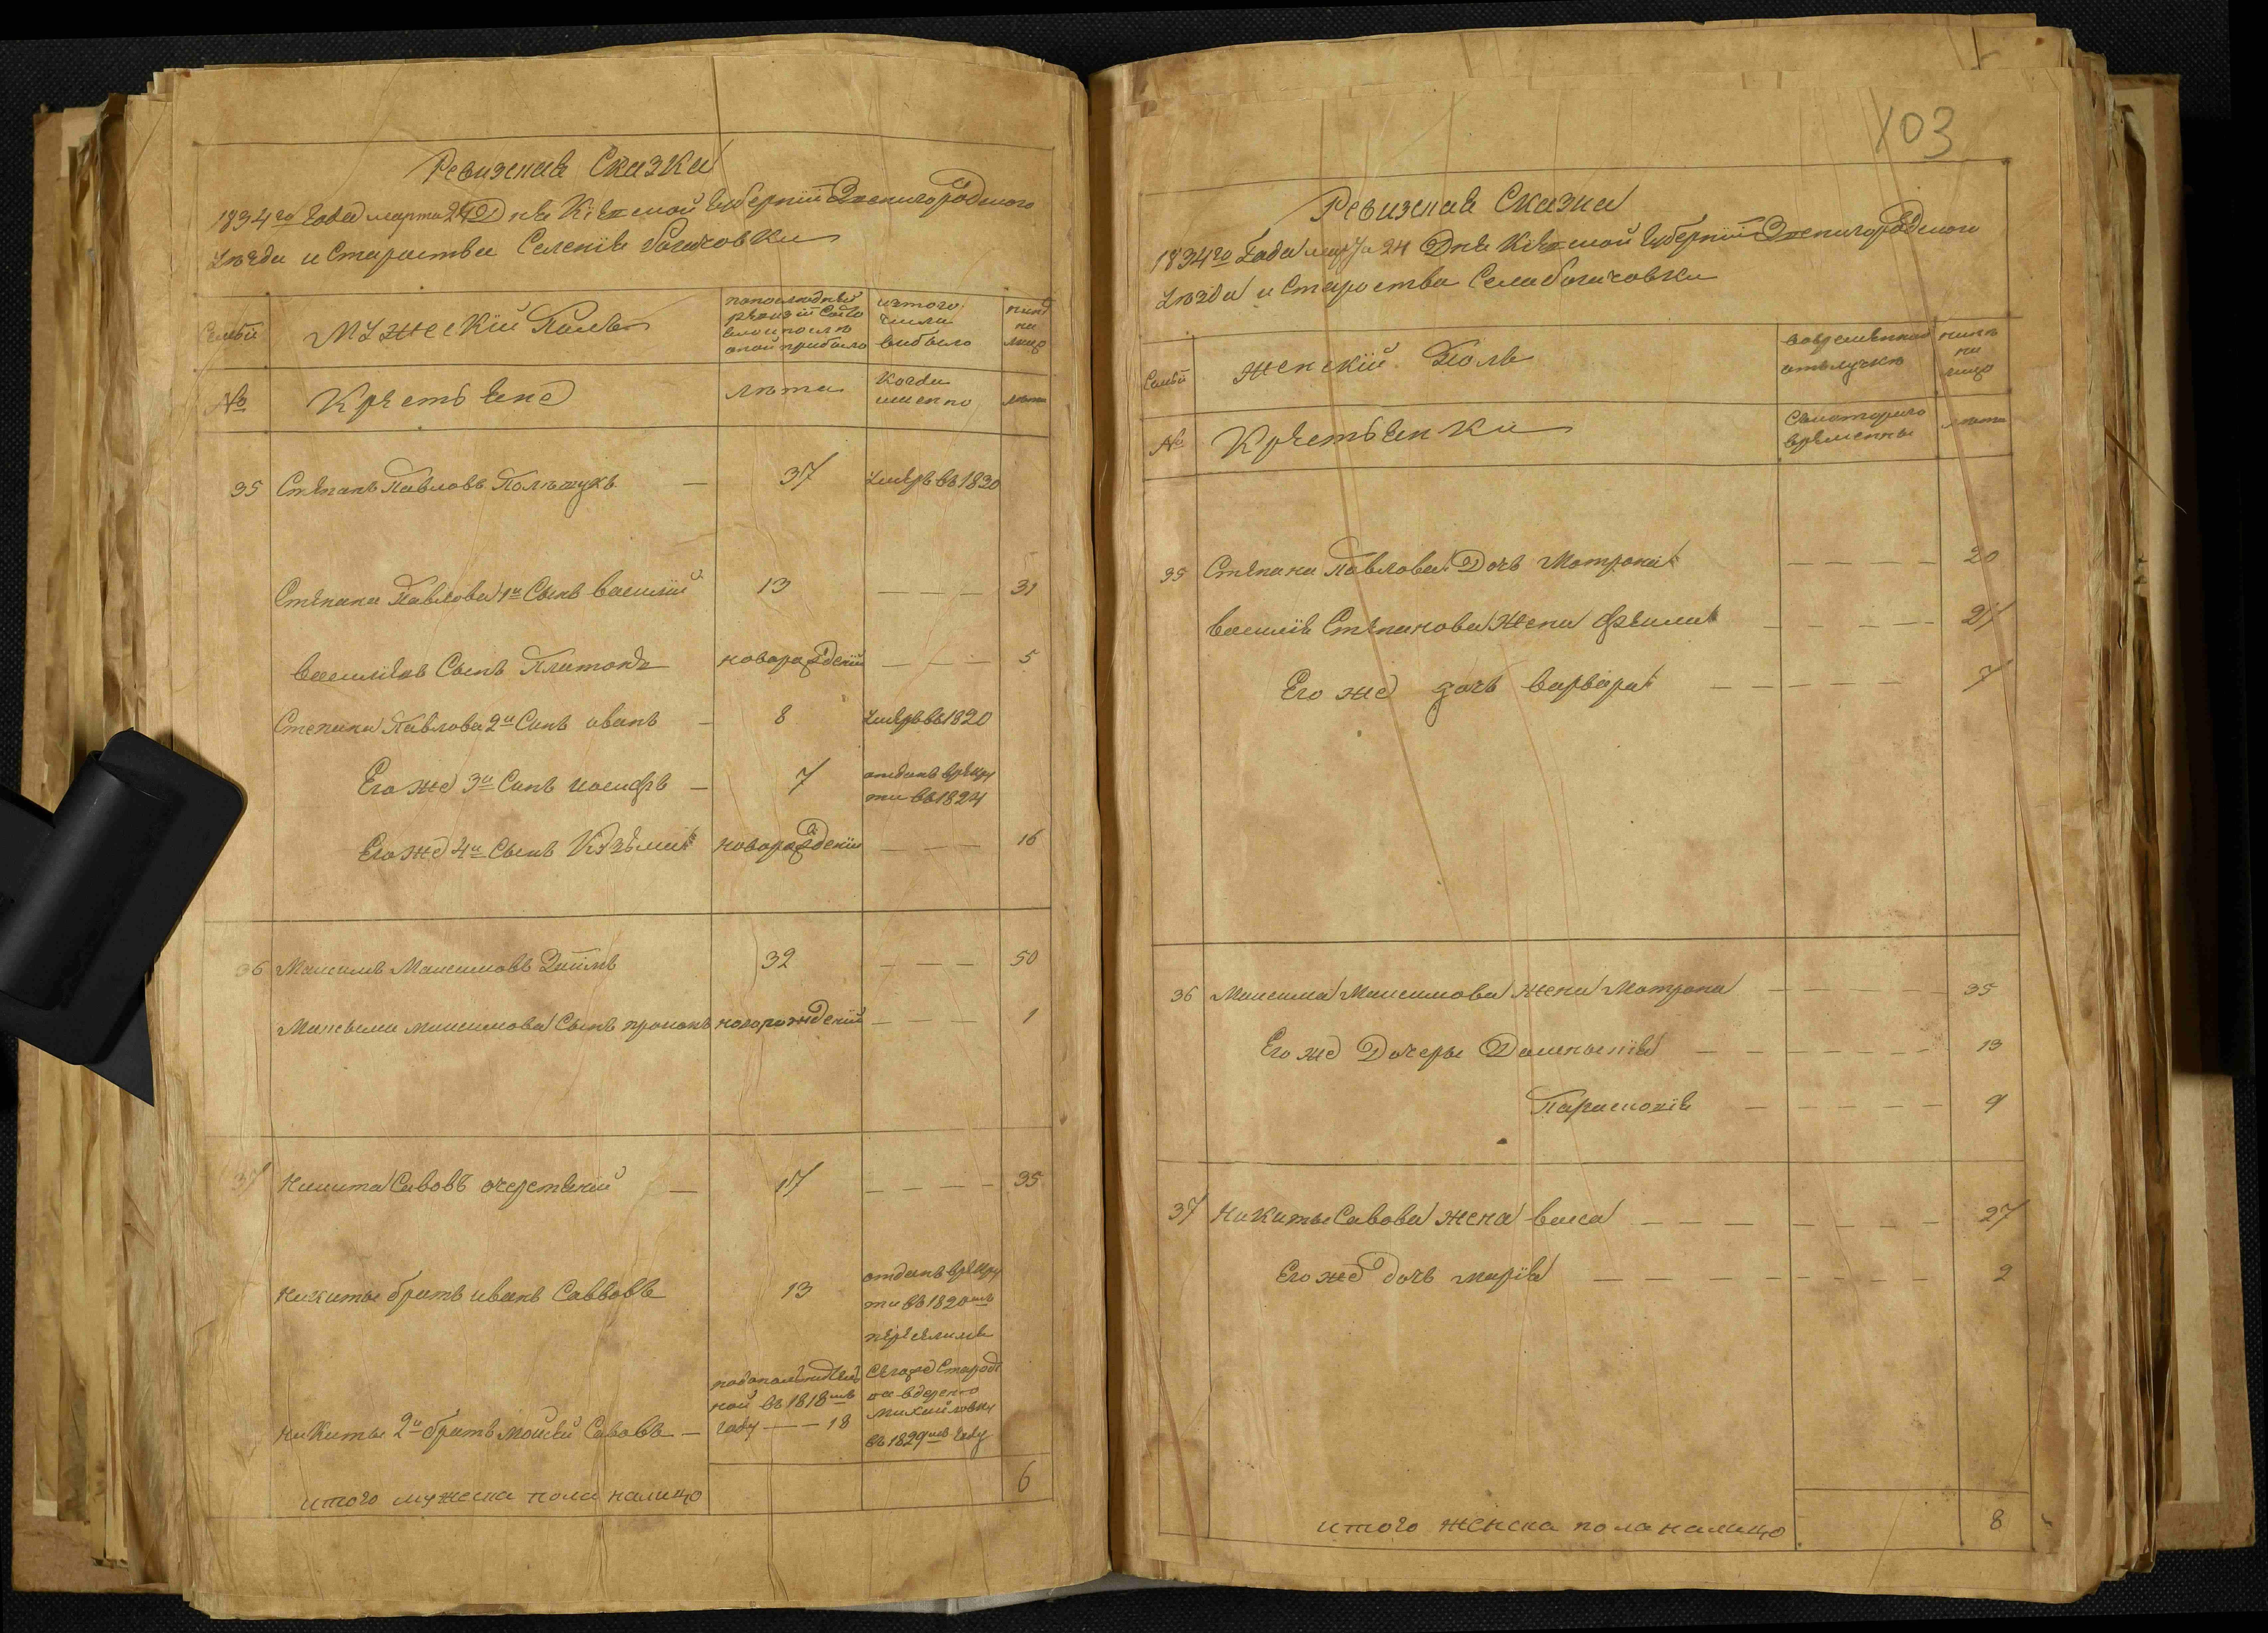 Ревизская Сказка
1834го Года марта 24 Дня Кіевской Губерніи Звенигородского
Уезда и Староства Селенія Богачовки
Семьи
Мужескій Полъ
изтого числа выбыло
ныне на лицо
№
Крестьяне
лета
Когда именно
лета
35 Степанъ Павловъ Полещукъ — 37 Умеръ въ 1830
Степана Павлова 1й Сынъ василій 13 — — — 31
василіевъ Сынъ Платонъ новорожденій — — — 5
Степана Павлова 2й Синъ иванъ — 8 Умеръ въ 1820
Его же 3й Синъ иосифъ — 7 отданъ врекру
ти въ 1824
Его же 4й Сынъ Козьма новорожденій — — — 16
36 Максимъ Максимовъ 32 — — — 50
Максыма максимова Сынъ новорожденій — — — 1
37 Никита Савовъ — 17 — — — — 35
Никиты братъ иванъ Саввовъ 13 отданъ врекру
ти въ 1820мъ
Никиты 2й братъ Мойсей Савовъ —
ной въ 1818мъ
году — — 18
въ 1829мъ году
итого мужеска пола налицо 6
103
Ревизская Сказка
1834го Года марта 24 Дня Кіевской Губерніи Звенигородского
Уезда и Староства Села Богачовки
Семьи
женскій Полъ
вовременной отлучке
ныне на лицо
№
Крестьянки
Скотораго времены
лета
35 Степана Павлова Дочь Мотрона — — — — 20
василія Степанова Жена — — — — 27
Его же дочь варвара — — — — 7
36 Максима Максимова жена Мотрона — — — — 35
Его же Дочеры — — — — 13
Параскокія — — — — 9
37 Никиты Савова жена васа — — — — 27
Его же дочь марія — — — — 2
итого женска пола налицо 8